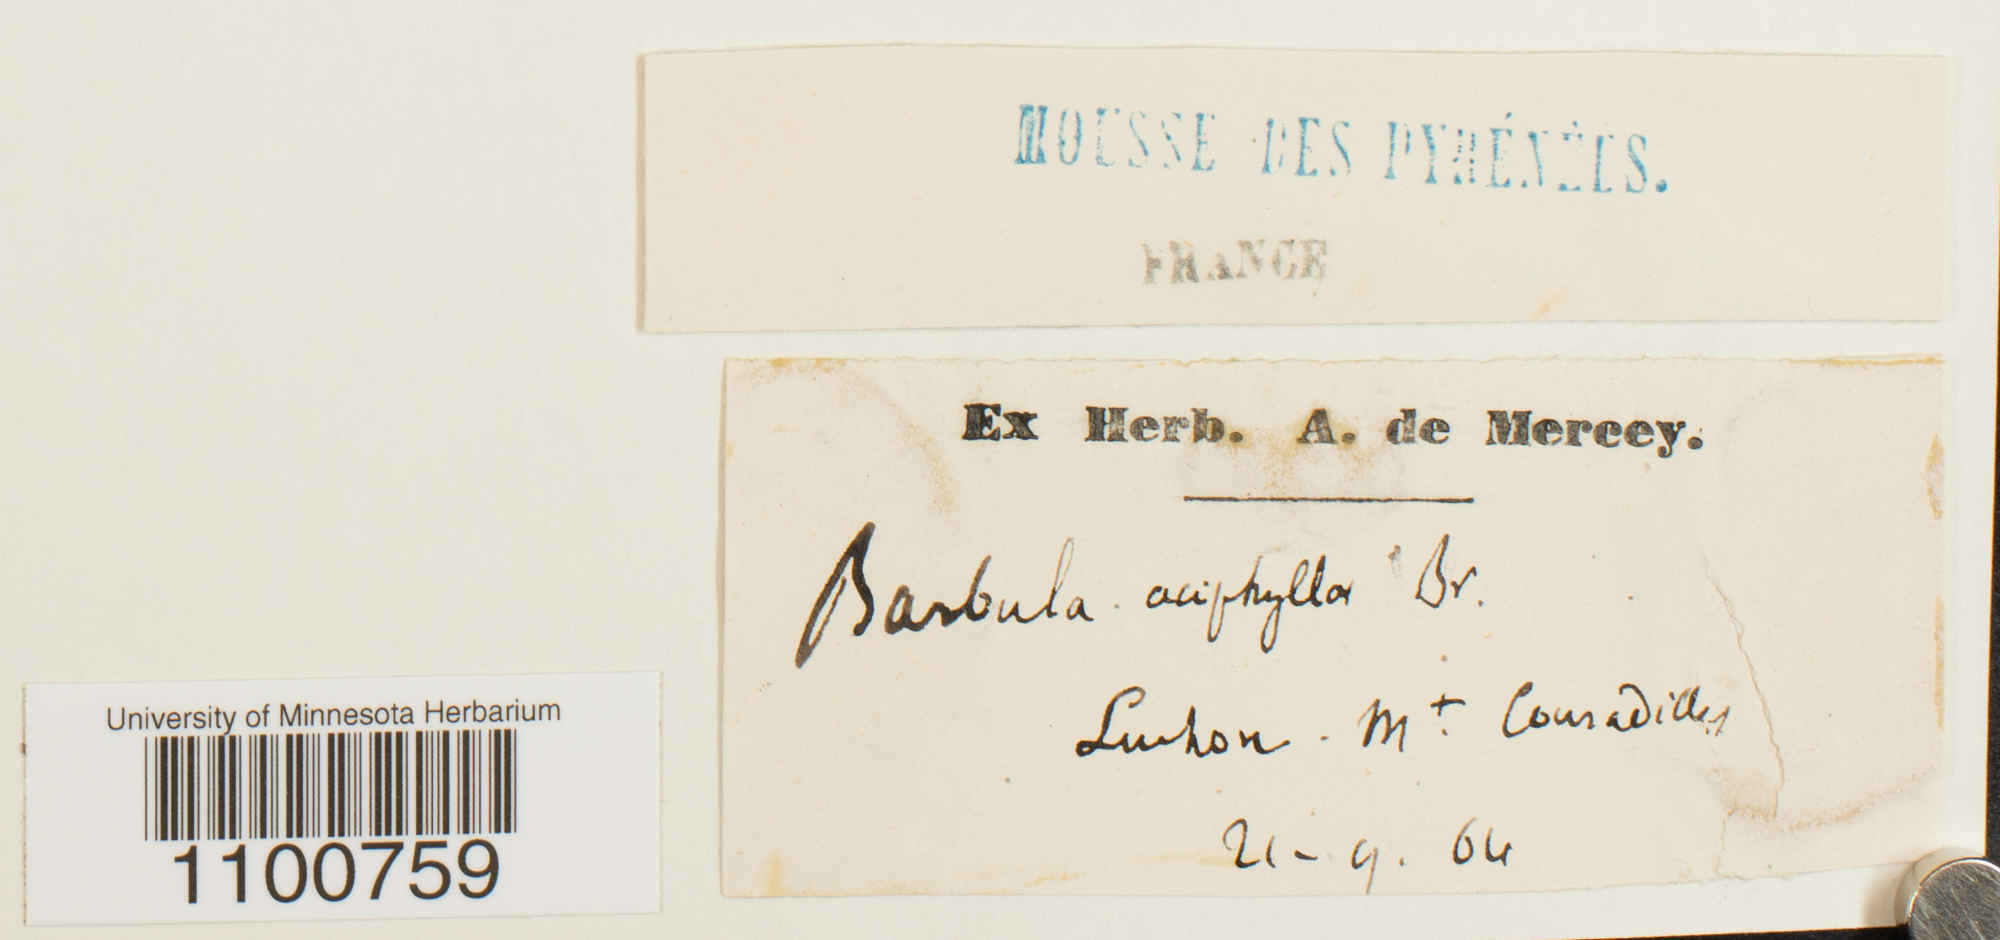 MOUSSE DES PYRÉNÉES.
FRANCE
Ex Herb. A. de Mercey.
Barbula aciphylla Br.
Luchon. Mt Couradilles
21-9. 64
University of Minnesota Herbarium
1100759